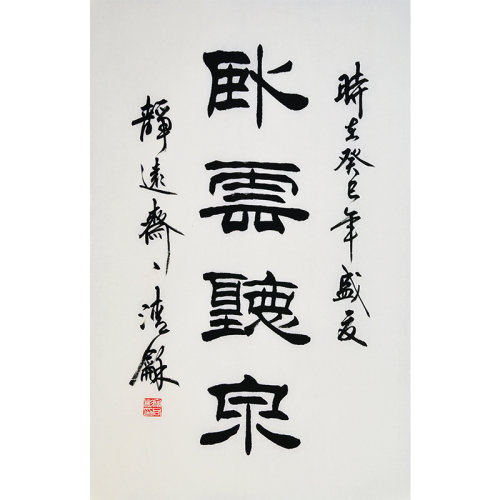 臥雲聽泉
時在癸巳年盛夏
靜遠齋、清龢